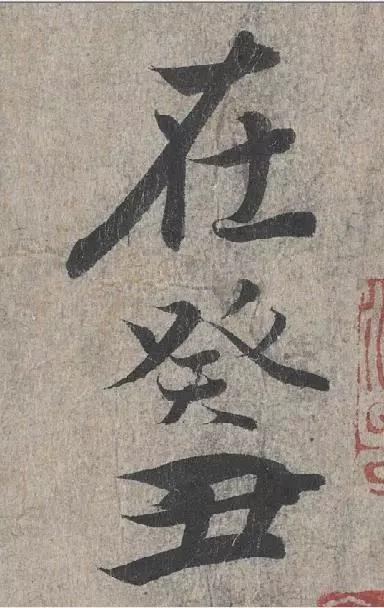 在癸丑